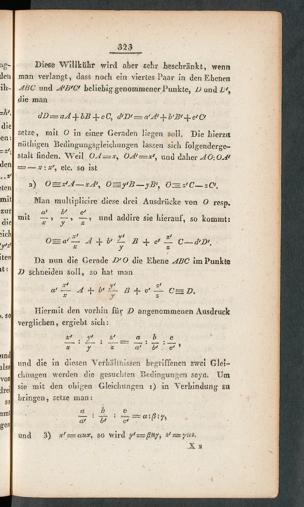 323
Diese Willkühr wird aber sehr beschränkt, wenn
man verlangt, dass noch ein viertes Paar in den Ebenen
ABC und A'B'C' beliebig genommener Punkte, D und D',
die man
dD=aA+bB+cC, d'D'=a'A'+b'B'+c'C'
setze, mit O in einer Geraden liegen soll. Die hierzu
nöthigen Bedingungsgleichungen lassen sich folgenderge-
stalt finden. Weil OA=x, OA'=x', und daher AO:OA'
=—x:x', etc. so ist
2) O≡x'A—xA', O≡y'B—yB', O≡z'C—zC'.
Man multiplicire diese drei Ausdrücke von O resp.
mit a'/x, b'/y, c'/z, und addire sie hierauf, so kommt:
O≡a' x'/x A + b' y'/y B + c' z'/z C—d'D'.
Da nun die Gerade D'O die Ebene ABC im Punkte
D schneiden soll, so hat man
a' x'/x A + b' y'/y B + c' z'/z C≡D.
Hiermit den vorhin für D angenommenen Ausdruck
verglichen, ergiebt sich:
x'/x : y'/y : z'/z = a/a' : b/b' : c/c',
und die in diesen Verhältnissen begriffenen zwei Glei-
chungen werden die gesuchten Bedingungen seyn. Um
sie mit den obigen Gleichungen 1) in Verbindung zu
bringen, setze man:
a/a' : b/b' : c/c' =α:β:γ,
und 3) x'=αux, so wird y'=βuy, z'=γuz.
X 2